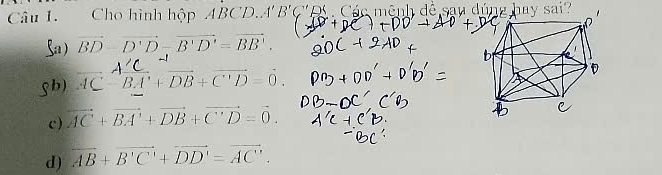 Câu 1. Cho hình hộp ABCD.A'B'C'D'. Các mệnh đề sau đúng hay sai?
Sa) BD - D'D - B'D' = BB'.
A'C
Sb) AC - BA' + DB + C'D = 0.
c) AC + BA' + DB + C'D = 0.
d) AB + B'C' + DD' = AC'.
2DC + 2AD +
DB + DD' + D'B' =
DB - DC' C'B
A'C + C'B.
- BC'
D'
B
C